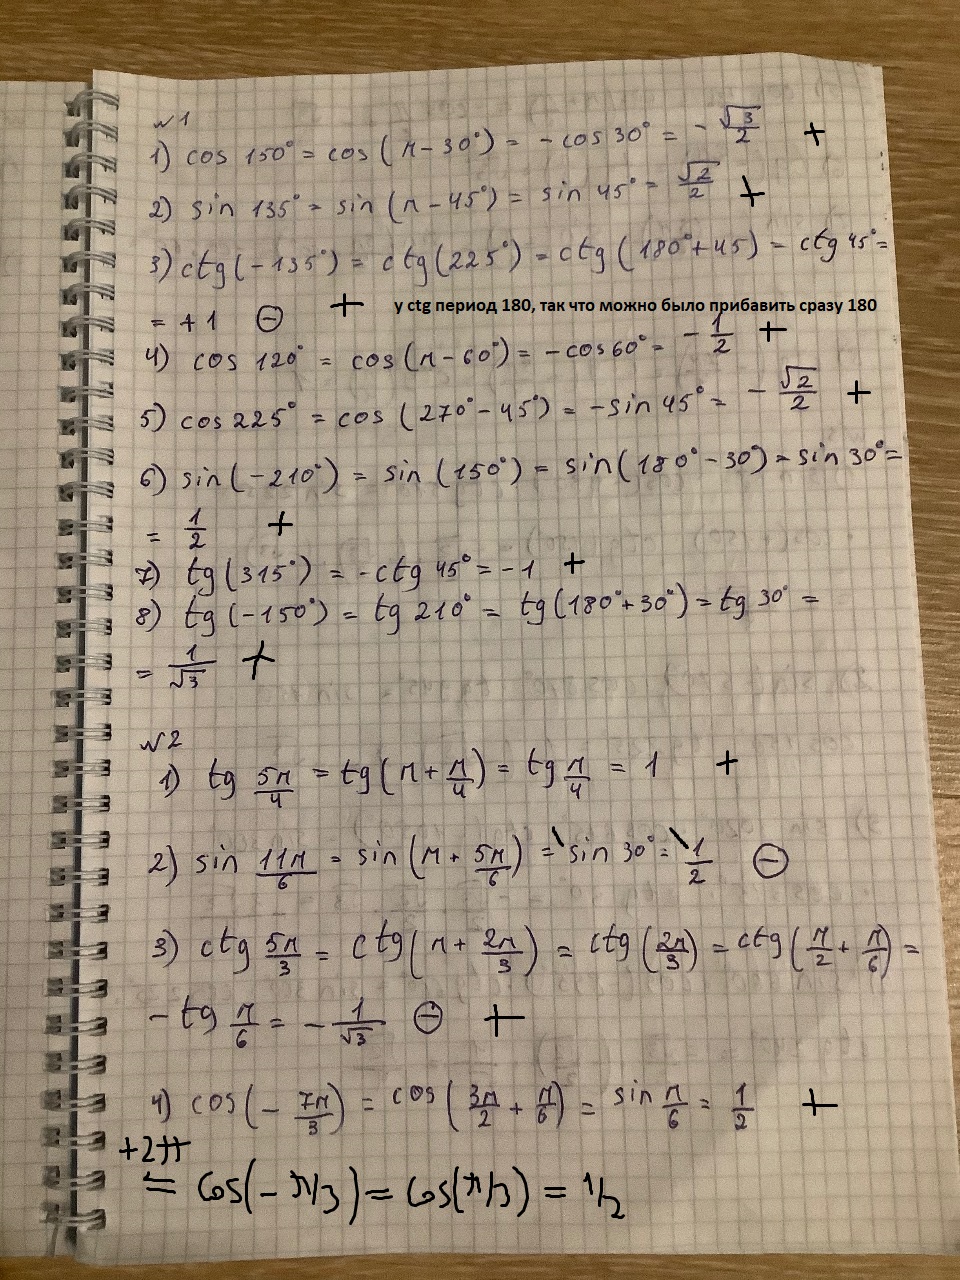 №1
1) cos 150° = cos (π - 30°) = - cos 30° = - √3/2 +
2) sin 135° = sin (π - 45°) = sin 45° = √2/2 +
3) ctg (-135°) = ctg (225°) = ctg (180° + 45) = ctg 45° =
= +1 ⊖ + у ctg период 180, так что можно было прибавить сразу 180
4) cos 120° = cos (π - 60°) = - cos 60° = - 1/2 +
5) cos 225° = cos (270° - 45°) = - sin 45° = - √2/2 +
6) sin (-210°) = sin (150°) = sin (180° - 30°) = sin 30° =
= 1/2 +
7) tg (315°) = - ctg 45° = -1 +
8) tg (-150°) = tg 210° = tg (180° + 30°) = tg 30° =
= 1/√3 +
№2
1) tg 5π/4 = tg (π + π/4) = tg π/4 = 1 +
2) sin 11π/6 = sin (π + 5π/6) = \ sin 30° = \ 1/2 ⊖
3) ctg 5π/3 = ctg (π + 2π/3) = ctg (2π/3) = ctg (π/2 + π/6) =
- tg π/6 = - 1/√3 ⊖ +
4) cos (- 7π/3) = cos (3π/2 + π/6) = sin π/6 = 1/2 +
+2π
= cos(- π/3) = cos(π/3) = 1/2